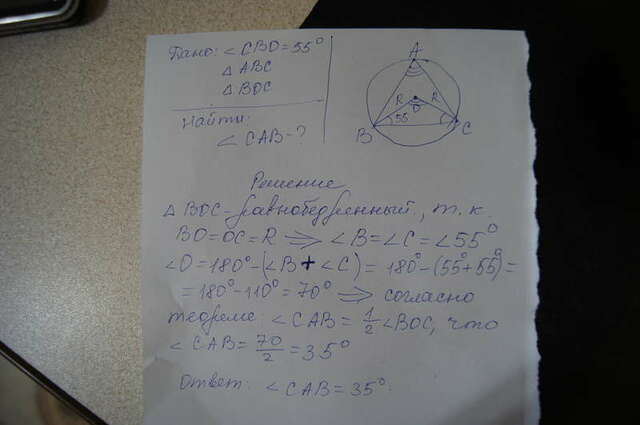 Дано: ∠CBO = 55°
△ ABC
△ BOC
Найти:
∠ CAB - ?
A
R R
O
55
B C
Решение
△ BOC - равнобедренный, т.к.
BO = OC = R ⇒ ∠B = ∠C = ∠55°
∠O = 180° - (∠B + ∠C) = 180° - (55° + 55°) =
= 180° - 110° = 70° ⇒ согласно
теореме ∠CAB = 1/2 ∠BOC, что
∠ CAB = 70/2 = 35°
Ответ: ∠ CAB = 35°.